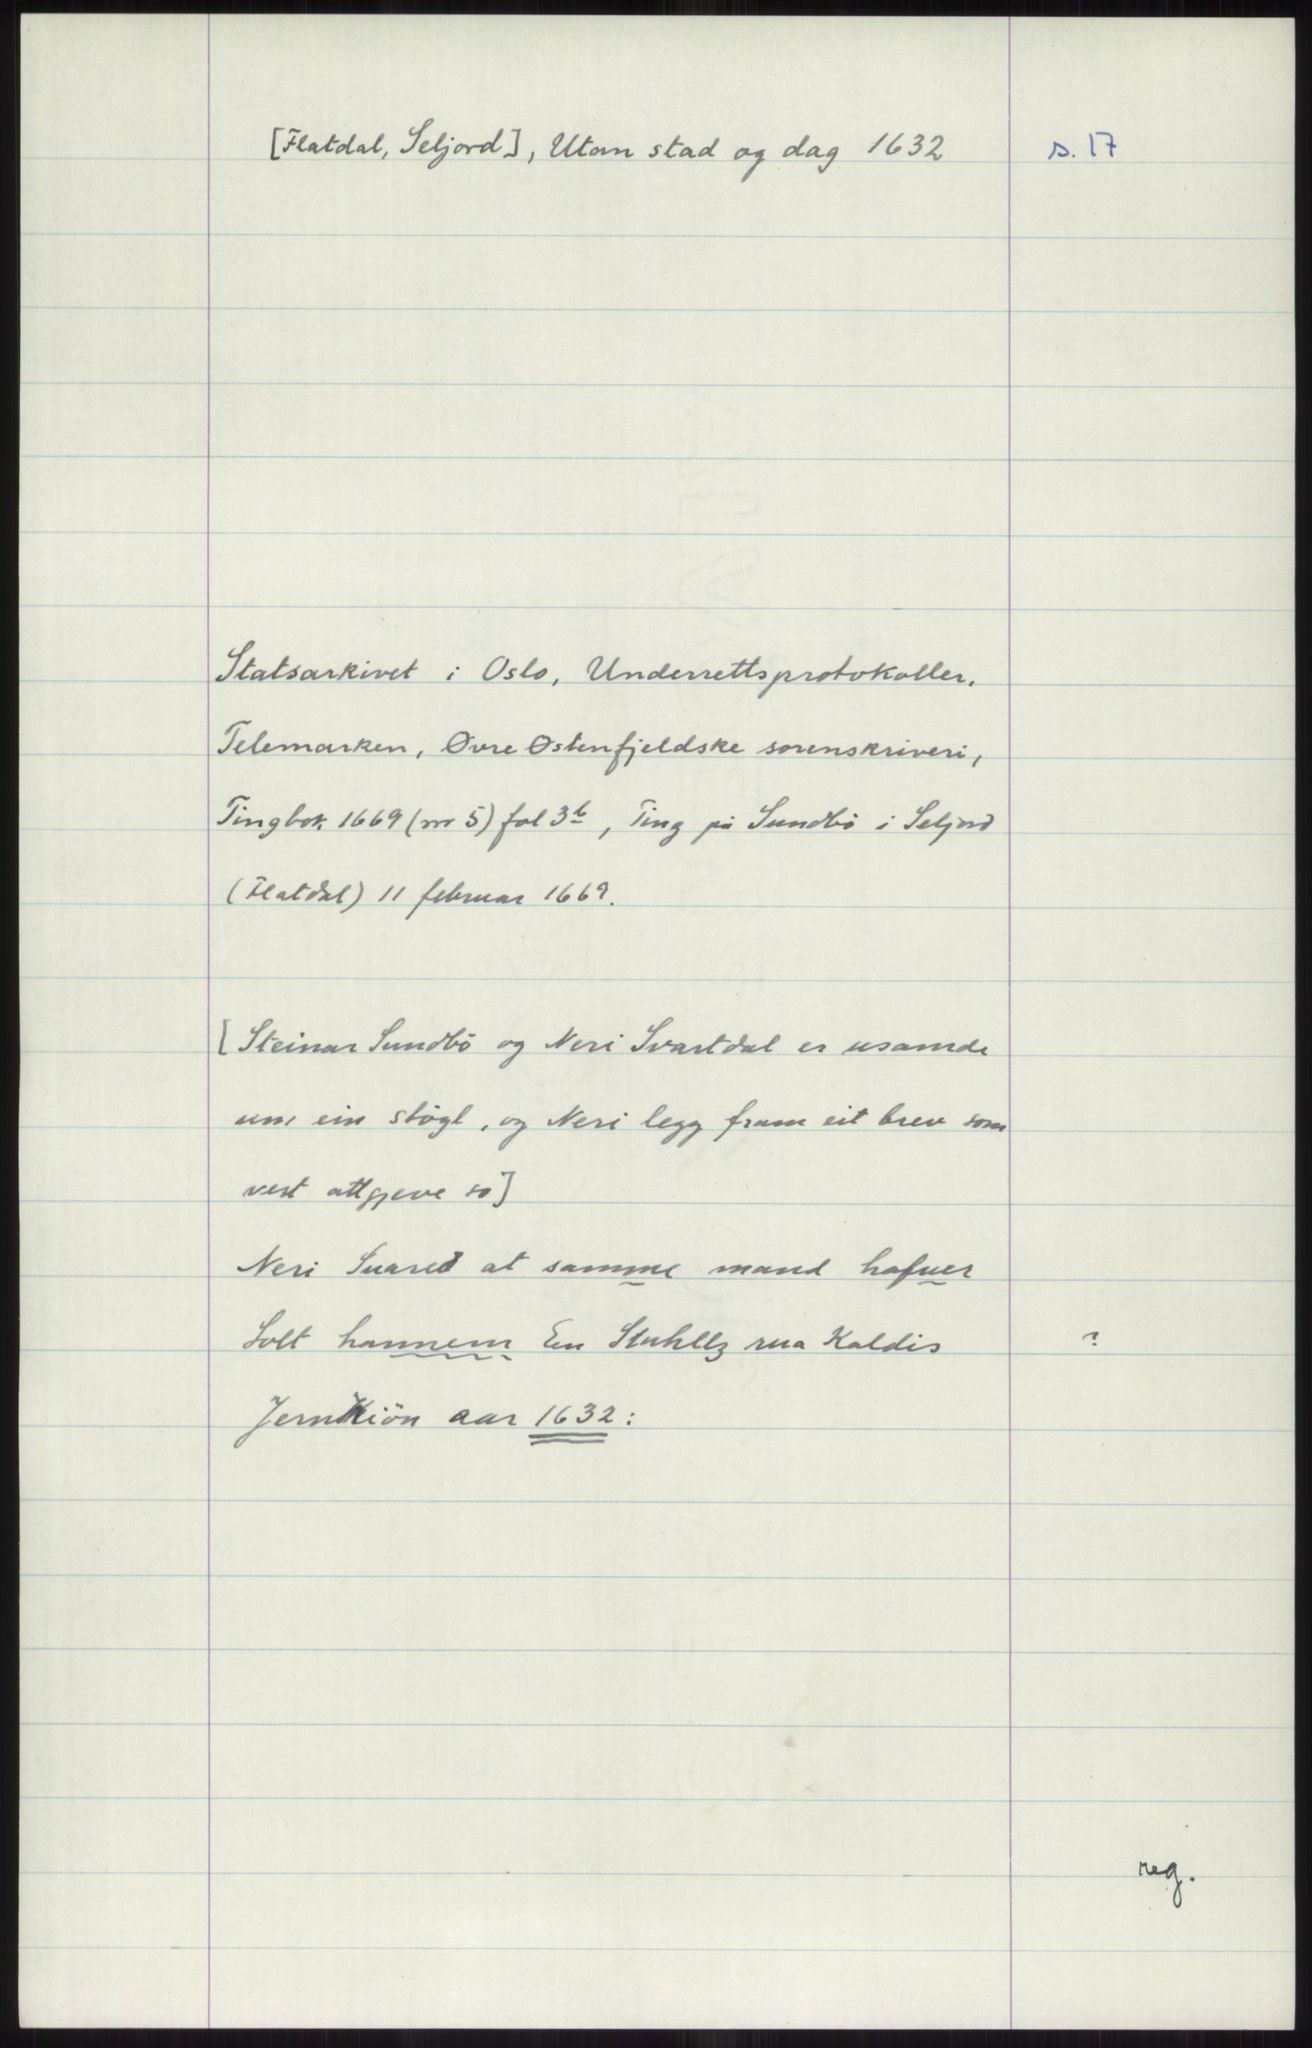 [Flatdal, Seljord], Utan stad og dag 1632
s. 17
Statsarkivet i Oslo, Underrettsprotokoller.
Telemarken, Øvre Østenfjeldske sorenskriveri,
Tingbok 1669 (nr 5) fol 3b, Ting på Sundbö i Seljord
(Flatdal) 11 februar 1669.
[Steinar Sundbö og Neri Svartdal er usamde
um ein stögl, og Neri legg fram eit brev som
vert attgjeve so]
Neri Suared at samme mand hafuer
Solt hannem En Stuhllz rua Kaldis
?
JernKiön aar 1632:
reg.